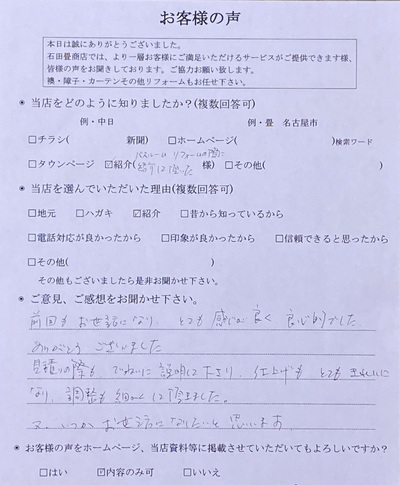 お客様の声
本日は誠にありがとうございました。
石田畳商店では、より一層お客様にご満足いただけるサービスがご提供できます様、
皆様の声をお聞きしております。ご協力お願い致します。
襖・障子・カーテンその他リフォームもお任せ下さい。
◉ 当店をどのように知りましたか？(複数回答可)
例・中日 例・畳 名古屋市
□チラシ( 新聞) □ホームページ( )検索ワード
バスルーム リフォームの際に
□タウンページ ☑紹介(紹介して頂いた 様) □その他( )
◉ 当店を選んでいただいた理由(複数回答可)
□地元 □ハガキ ☑紹介 □昔から知っているから
□電話対応が良かったから □印象が良かったから □信頼できると思ったから
□その他( )
その他もございましたら是非お聞かせ下さい。
◉ ご意見、ご感想をお聞かせ下さい。
前回もお世話になり、とても感じが良く 良心的でした。
ありがとう ございました
見積りの際も、ていねいに説明して下さり、仕上げも とても きれいに
なり、調整も細かくして頂きました。
又、いつか お世話になりたいと思います。
◉ お客様の声をホームページ、当店資料等に掲載させていただいてもよろしいですか？
□はい ☑内容のみ可 □いいえ